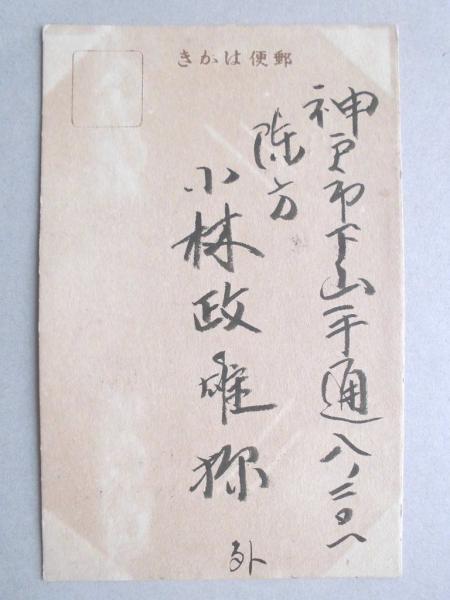 郵便はかき
神戸市下山手通八ノ二
陳方
小林政雄様